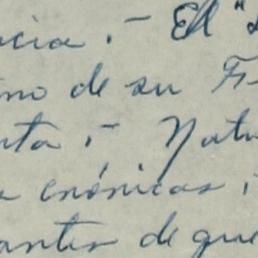 ncia.- El "
no de su F
nta.- Natu
crónicas,
antes de que